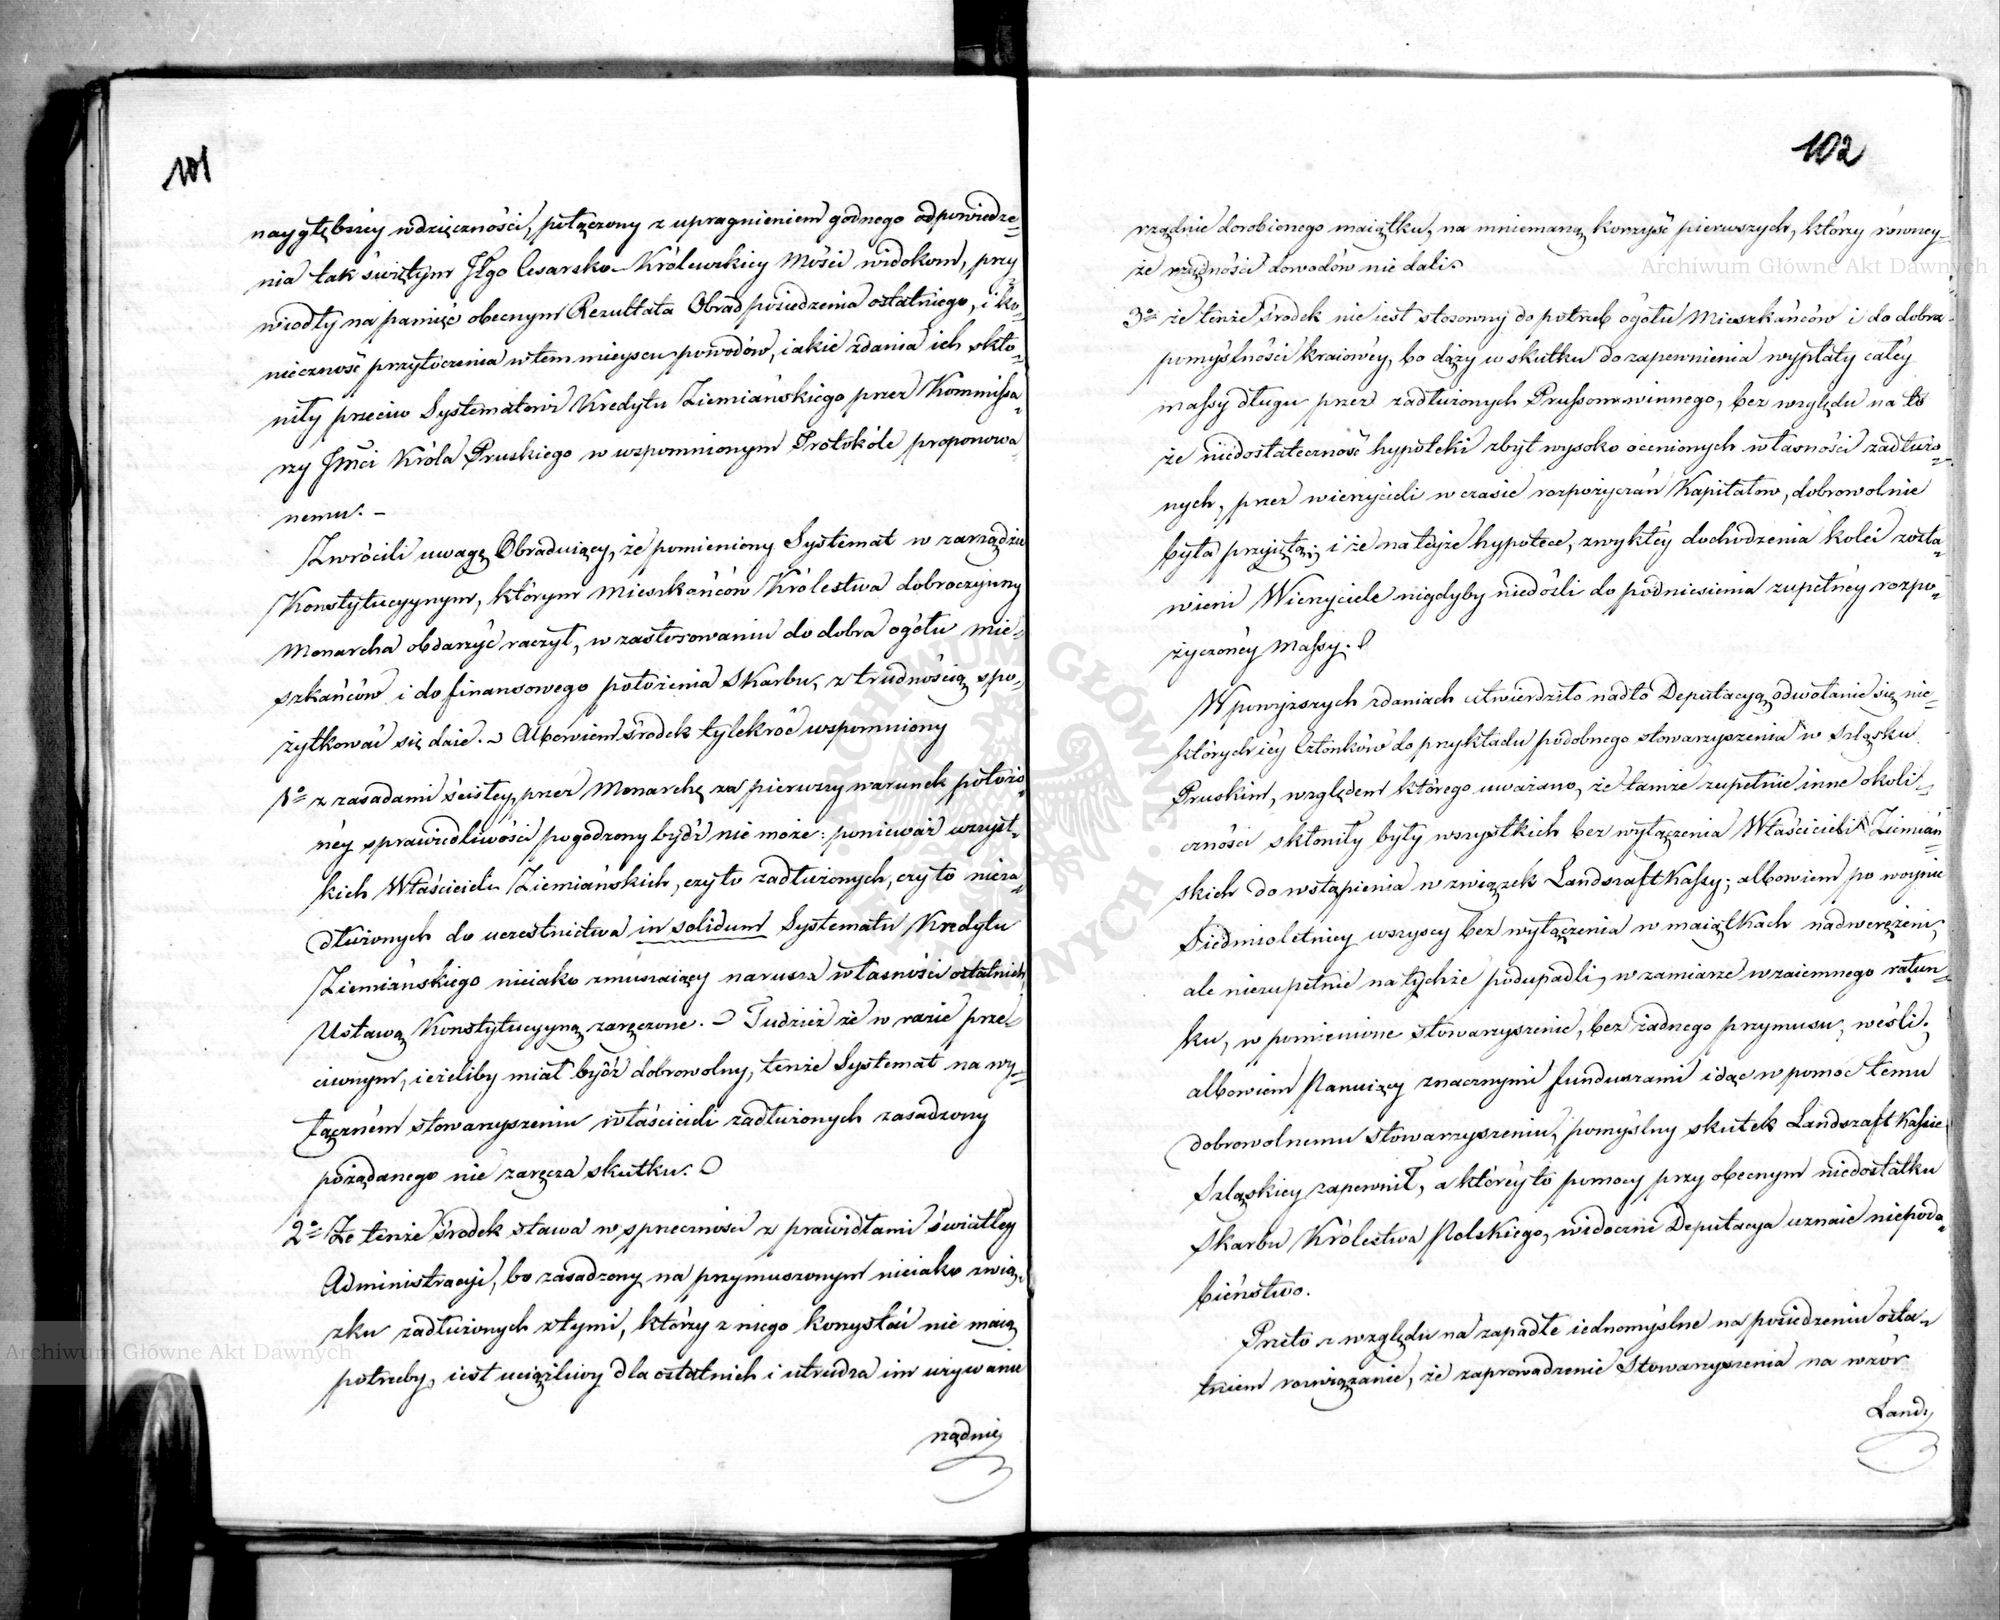 101
naygłębszéy wdzięczności, połączony z upragnieniem godnego odpowiedze=
nia tak świętym JEgo Cesarsko-Królewskiey Mości widokom, przy
wiodły na pamięć obecnym Rezultata Obrad posiedzenia ostatniego, i ko=
nieczność przytoczenia w tem mieyscu powodów, iakie zdania ich skło=
niły przeciw Systematowi Kredytu Ziemiańskiego przez Kommissa=
rzy Jmci Króla Pruskiego w wspomnionym Protokóle proponowa=
nemu. –
Zwrócili uwagę Obraduiący, że pomieniony Systemat w zarządzie
Konstytucyynym, którym Mieszkańców Królestwa dobroczynny
Monarcha obdarzyć raczył, w zastosowaniu do dobra ogółu mie=
szkańców i do finansowego położenia Skarbu, z trudnością spo=
żytkować się daie. Albowiem środek tylekroć wspomniony
1o z zasadami ścisłey, przez Monarchę za pierwszy warunek położo=
néy sprawiedliwości pogodzony bydź nie może: ponieważ wszyst=
kich Właścicieli Ziemiańskich, czy to zadłużonych, czy to nieza=
dłużonych do uczestnictwa in solidum Systematu Kredytu
Ziemiańskiego nieiako zmuszaiący narusza własności ostatnich
Ustawą Konstytucyyną zaręczone. Tudzież że w razie prze=
ciwnym, ieżeliby miał bydź dobrowolny, tenże Systemat na wy=
łączném stowarzyszeniu właścicieli zadłużonych zasadzony
pożądanego nie zaręcza skutku.
2o Że tenże środek stawa w sprzeczności z prawidłami światłey
Administracyi, bo zasadzony na przymuszonym nieiako zwią=
zku zadłużonych z tymi, którzy z niego korzystać nie maią
potrzeby, iest uciążliwy dla ostatnich i utrudza im używanie
rządnie
102
rządnie dorobionego maiątku, na mniemaną korzyść pierwszych, którzy równey=
że rządności dowodów nie dali.
3o że tenże środek nie iest stosowny do potrzeb ogółu Mieszkańców i do dobra
pomyślności kraiowéy, bo dąży w skutku do zapewnienia wypłaty całéy
massy długu przez zadłużonych Prussom winnego, bez względu na to
że niedostateczność hypoteki zbyt wysoko ocenionych własności zadłużo=
nych, przez wierzycieli w czasie rozpożyczań Kapitałów, dobrowolnie
była przyiętą; i że na teyże hypotece, zwykłéy dochodzenia kolei zosta=
wieni Wierzyciele nigdyby niedośli do podniesienia zupełnéy rozpo=
życzonéy Massy.
W powyższych zdaniach utwierdziło nadto Deputacyą odwołanie się nie=
których iéy Członków do przykładu podobnego stowarzyszenia w Szląsku
Pruskim, względem którego uważano, że tamże zupełnie inne okoli=
czności skłoniły były wszystkich bez wyłączenia Właścicieli Ziemiań=
skich do wstąpienia w związek Landszaft Kassy; albowiem po woynie
Siedmioletniey wszyscy bez wyłączenia w maiątkach nadwerężeni,
ale niezupełnie na tychże podupadli, w zamiarze wzaiemnego ratun=
ku, w pomienione stowarzyszenie, bez żadnego przymusu, weśli;
albowiem Panuiący znacznymi funduszami idąc w pomoc temu
dobrowolnemu stowarzyszeniu, pomyślny skutek Landszaft Kassie
Szląskiey zapewnił, a któréy to pomocy przy obecnym niedostatku
Skarbu Królestwa Polskiego, widocznie Deputacya uznaie niepodo=
bieństwo.
Przeto z względu na zapadłe iednomyślne na posiedzeniu osta=
tniem rozwiązanie, że zaprowadzenie Stowarzyszenia na wzór
Landz
Archiwum Główne Akt Dawnych
Archiwum Główne Akt Dawnych